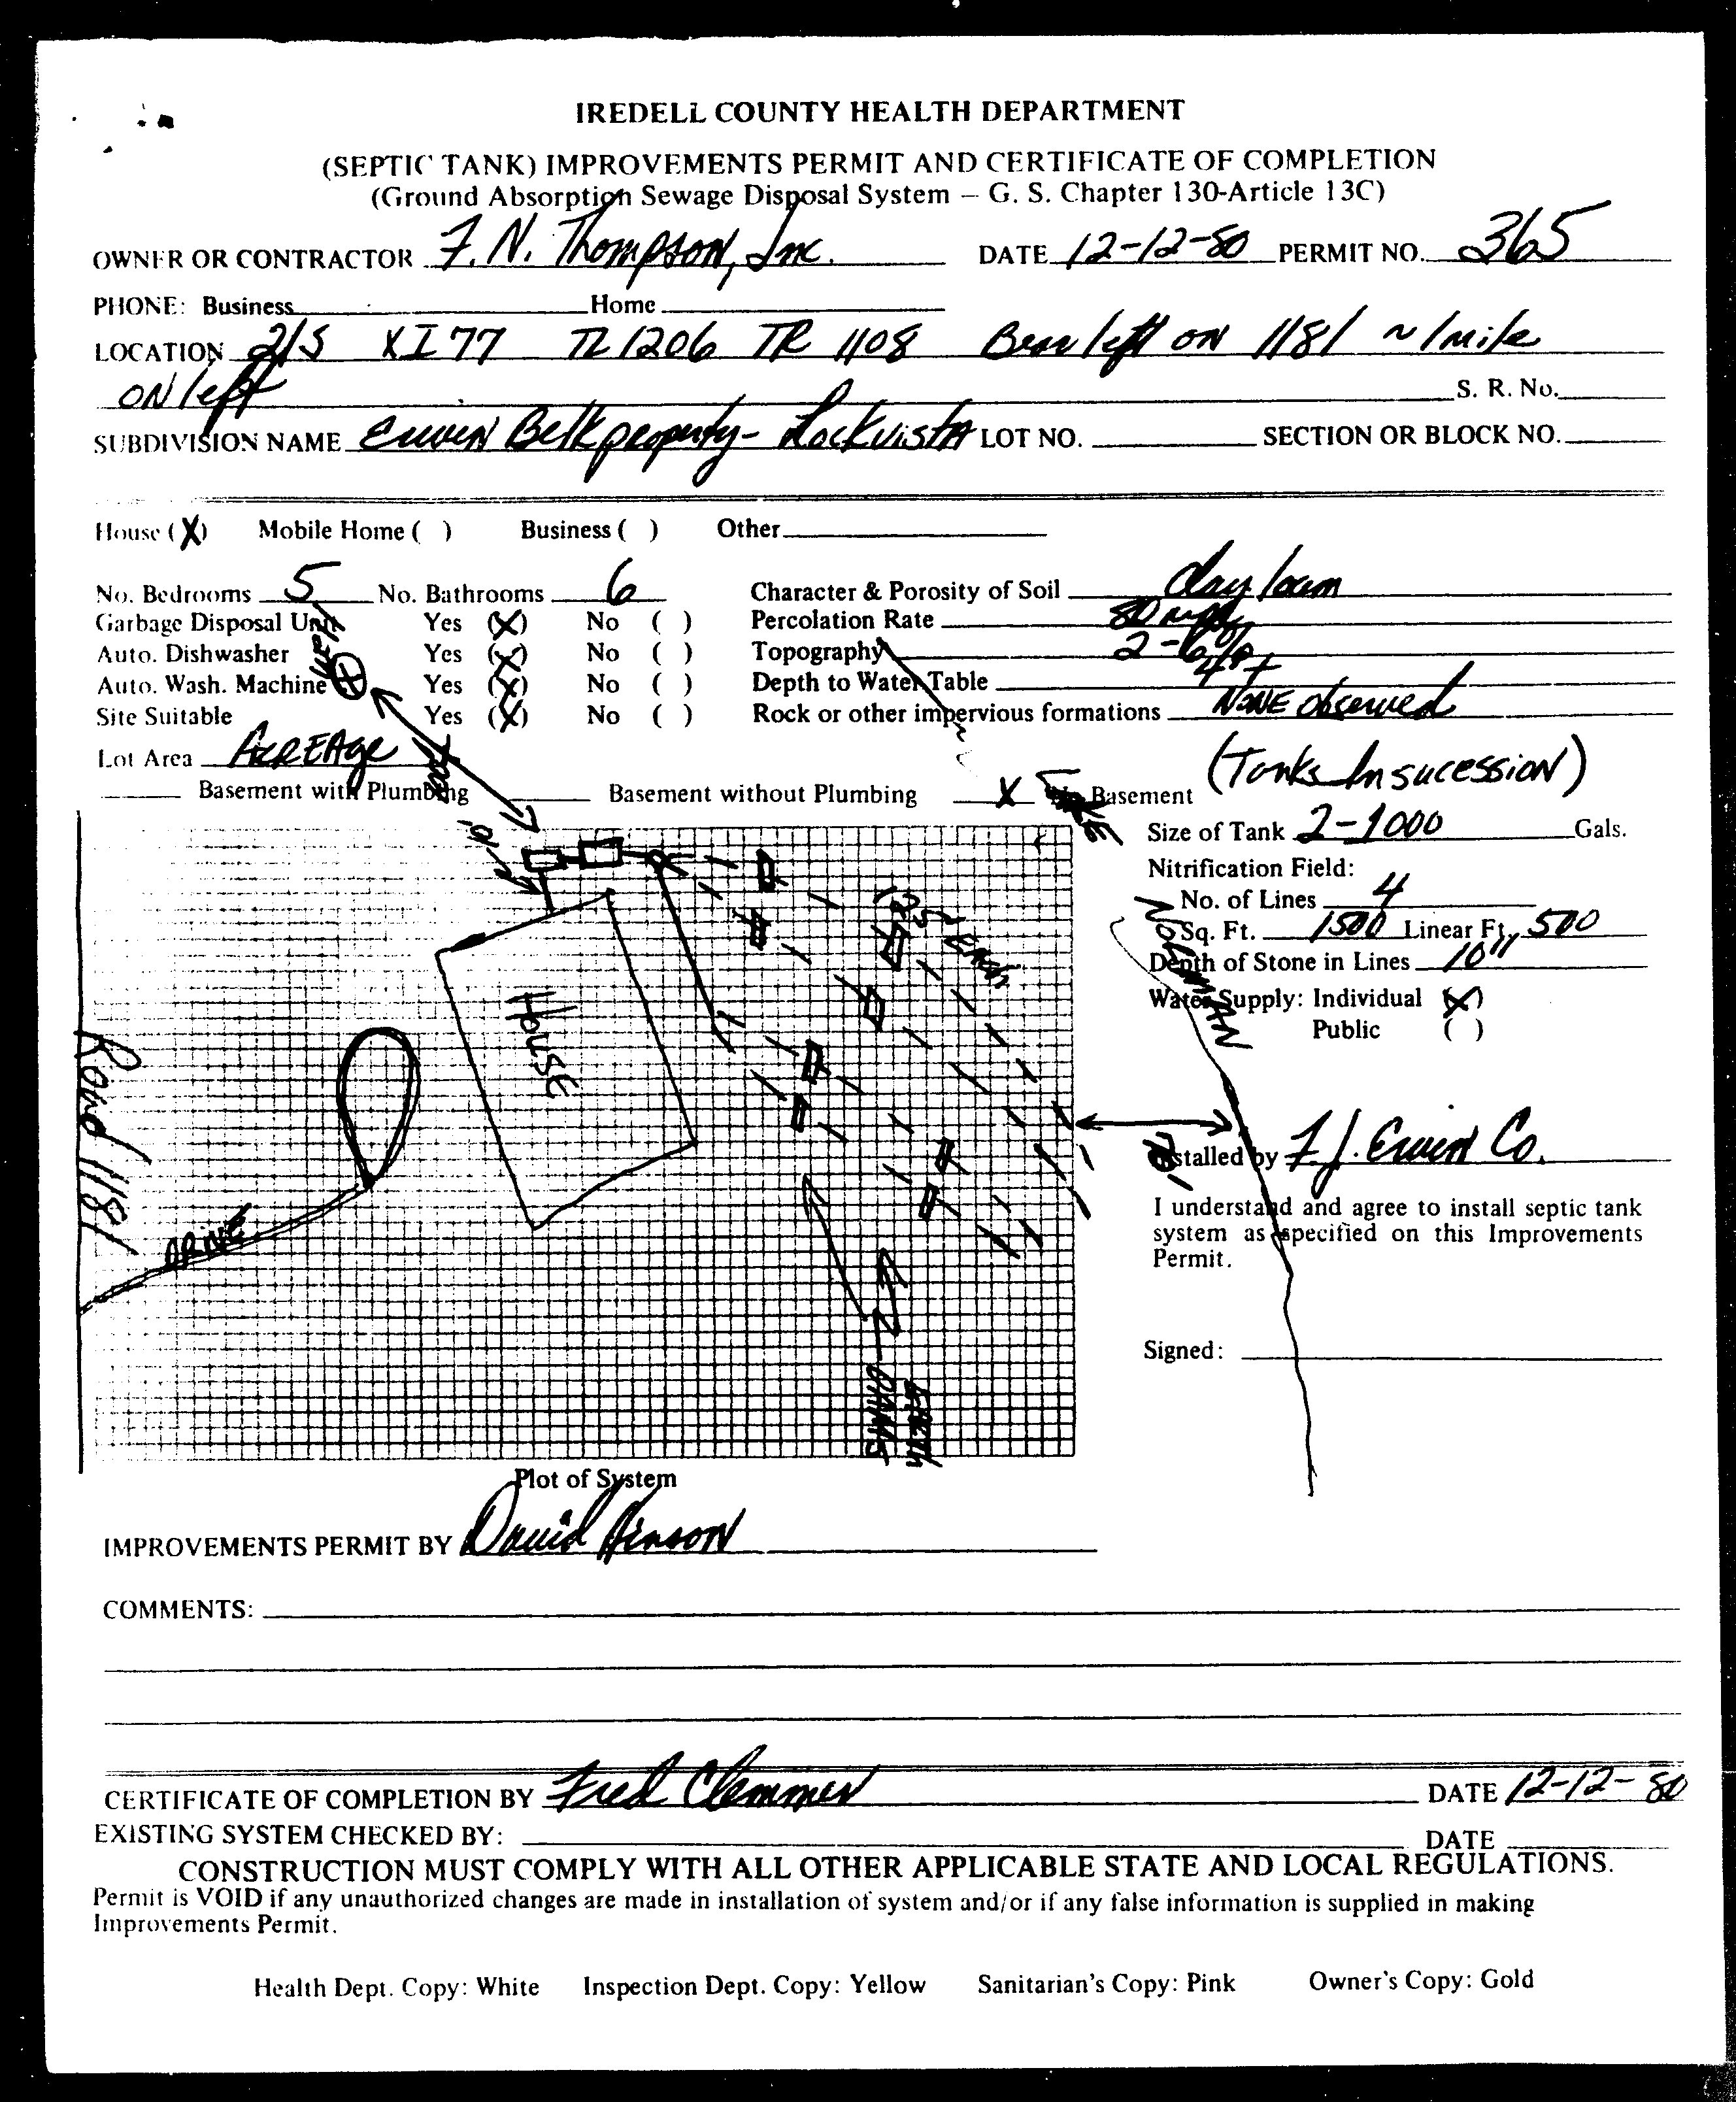 IREDELL COUNTY HEALTH DEPARTMENT
(SEPTIC TANK) IMPROVEMENTS PERMIT AND CERTIFICATE OF COMPLETION
(Ground Absorption Sewage Disposal System — G. S. Chapter 130-Article 13C)
OWNER OR CONTRACTOR F. N. Thompson, Inc. DATE 12-12-80 PERMIT NO. 365
PHONE: Business Home
LOCATION 21S X I 77 TL 1206 TR 1108 Bear left on 1181 ~ 1 mile
ON left S. R. No.
SUBDIVISION NAME Erwin Belk property - Lockvista LOT NO. SECTION OR BLOCK NO.
House (X) Mobile Home ( ) Business ( ) Other
No. Bedrooms 5 No. Bathrooms 6 Character & Porosity of Soil clay loam
Garbage Disposal Unit Yes (X) No ( ) Percolation Rate 80
Auto. Dishwasher Yes (X) No ( ) Topography 2-6%
Auto. Wash. Machine Yes (X) No ( ) Depth to Water Table 48+
Site Suitable Yes (X) No ( ) Rock or other impervious formations NONE observed
WELL
Lot Area ACREAge
(Tanks In sucession)
Basement with Plumbing Basement without Plumbing X Basement
Size of Tank 2-1000 Gals.
Nitrification Field:
No. of Lines 4
Sq. Ft. 1500 Linear Ft. 500
Depth of Stone in Lines 10"
Water Supply: Individual (X)
Public ( )
LAKE NORMAN
125' EACH
House
Road 1181
DRIVE
EARTH
DAMS
Installed by F. J. Erwin Co.
I understand and agree to install septic tank
system as specified on this Improvements
Permit.
Signed:
Plot of System
IMPROVEMENTS PERMIT BY David Hinson
COMMENTS:
CERTIFICATE OF COMPLETION BY Fred Clemmer DATE 12-12-80
EXISTING SYSTEM CHECKED BY: DATE
CONSTRUCTION MUST COMPLY WITH ALL OTHER APPLICABLE STATE AND LOCAL REGULATIONS.
Permit is VOID if any unauthorized changes are made in installation of system and/or if any false information is supplied in making
Improvements Permit.
Health Dept. Copy: White Inspection Dept. Copy: Yellow Sanitarian's Copy: Pink Owner's Copy: Gold